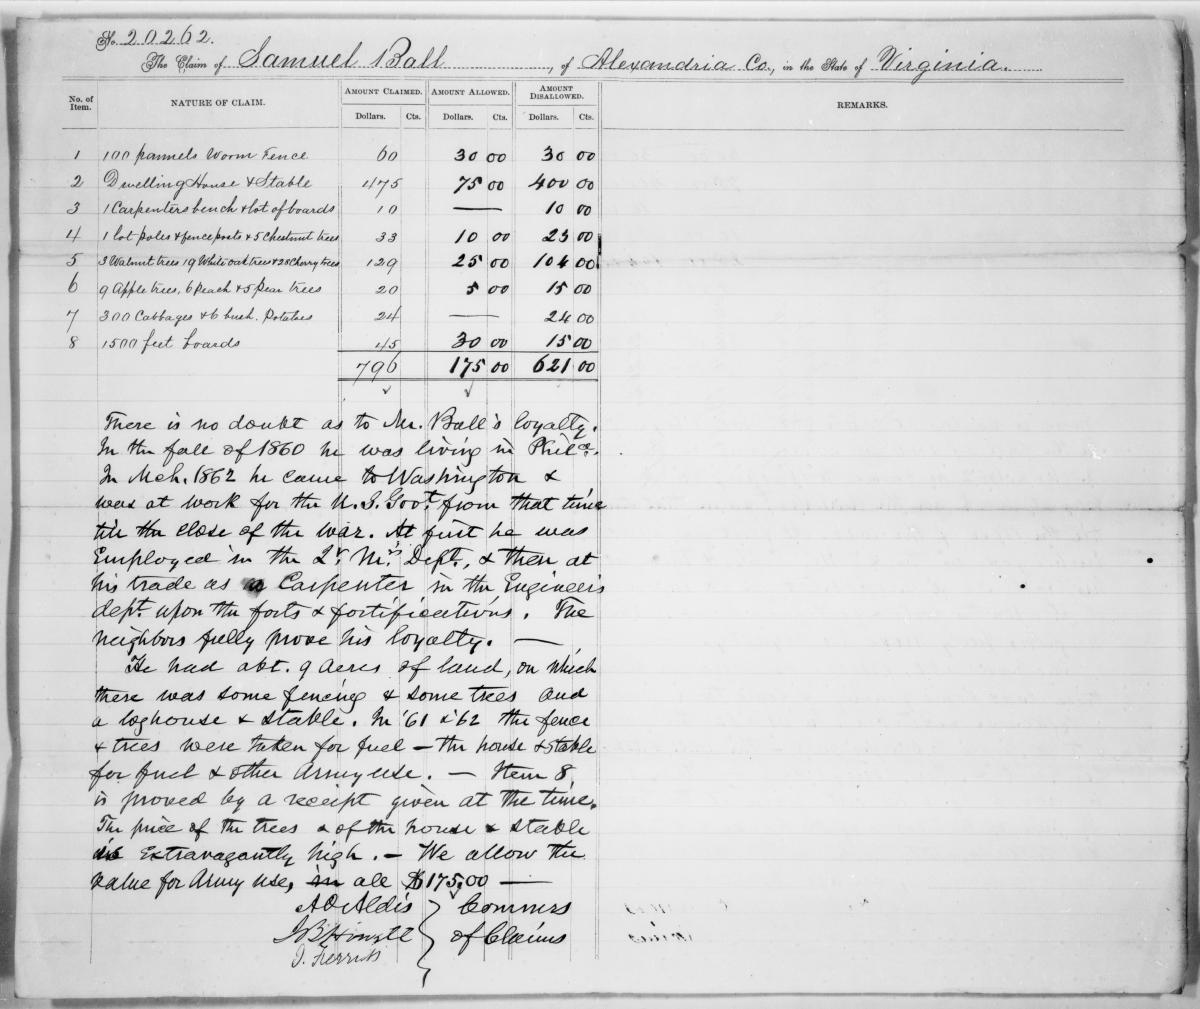 No. 20262.
The Claim of Samuel Ball, of Alexandria Co., in the State of Virginia.
No. of Item. NATURE OF CLAIM. AMOUNT CLAIMED. AMOUNT ALLOWED. AMOUNT DISALLOWED. REMARKS.
Dollars. Cts. Dollars. Cts. Dollars. Cts.
1 100 pannels Worm Fence 60 30 00 30 00
2 Dwelling House & Stable 475 75 00 400 00
3 1 Carpenters bench & lot of boards 10 — 10 00
4 1 lot poles & fence posts & 5 Chestnut trees 33 10 00 23 00
5 3 Walnut trees 19 White oak trees & 28 Cherry trees 129 25 00 104 00
6 9 Apple trees, 6 Peach & 5 Pear trees 20 5 00 15 00
7 300 Cabbages & 6 bush. Potatoes 24 — 24 00
8 1500 feet boards 45 30 00 15 00
796 175 00 621 00
There is no doubt as to Mr. Ball's loyalty.
In the fall of 1860 he was living in Phila.
In Mch. 1862 he came to Washington &
was at work for the U.S. Govt. from that time
till the close of the war. At first he was
Employed in the Qr. Mr's Dept., & then at
his trade as a Carpenter in the Engineers
dept. upon the forts & fortifications. The
neighbors fully prove his loyalty. —
He had abt. 9 acres of land, on which
there was some fencing & some trees and
a loghouse & stable. In '61 & '62 the fence
& trees were taken for fuel — the house & stable
for fuel & other Army use. — Item 8,
is proved by a receipt given at the time.
The price of the trees & of the house & stable
is Extravagantly high. — We allow the
value for Army use, in all $175.00 —
A O Aldis } Commrs
J B Howell of Claims
O. Ferriss